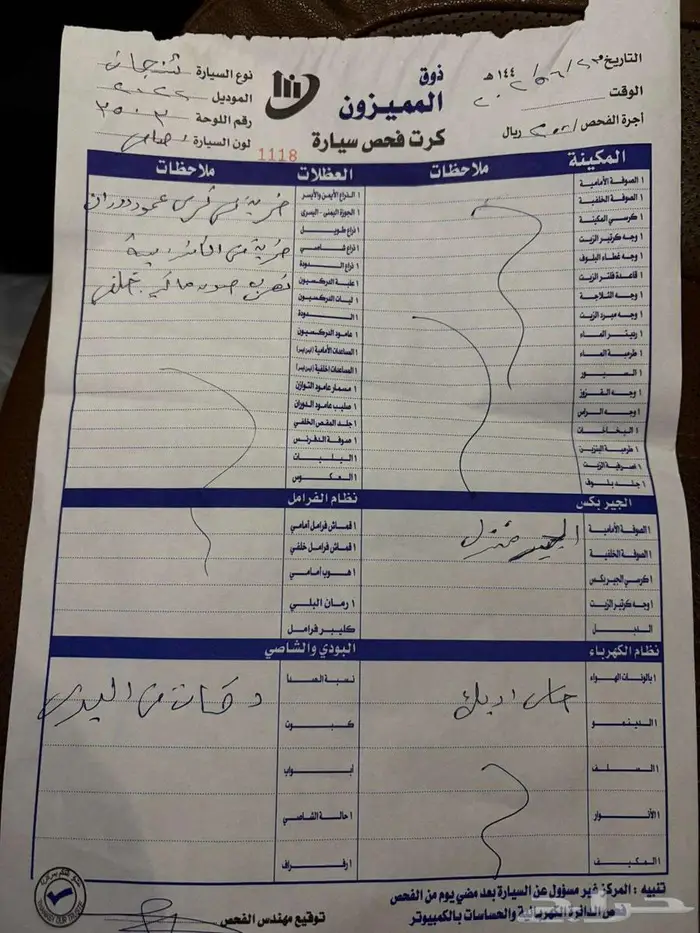 التاريخ
١٤٤ هـ
الوقت
أجرة الفحص
ريال
ذوق
المميزون
كرت فحص سيارة
نوع السيارة
الموديل ٢٠٢٢
رقم اللوحة ٣٥٠٣
لون السيارة
1118
المكينة
ملاحظات
١ الصوفة الأمامية
١ الصوفة الخلفية
١ كرسي المكينة
١ وجه كرتير الزيت
١ وجه غطاء البلوف
١ قاعدة فلتر الزيت
١ وجه الثلاجة
١ وجه مبرد الزيت
١ رديتر الماء
١ طرمبة الماء
١ السيور
١ وجه القزوز
١ وجه الراس
١ البخاخات
١ طرمبة البنزين
١ صرفية الزيت
١ جلد بلوف
العظلات
ملاحظات
١ الذراع الأيمن والأيسر
١ الجوزة اليمنى - اليسرى
١ ذراع طويل
١ ذراع قاصي
١ ذراع الدودة
١ علبة الدركسيون
١ ليات الدركسيون
١ الدودة
١ عامود الدركسيون
١ المساعدات الأمامية (يزيز)
١ المساعدات الخلفية (يزيز)
١ مسمار عامود التوازن
١ صليب عامود الدوران
١ جلد المقص الخلفي
١ صوفة الدفرنس
١ البليات
١ العكوس
عمود دوران
تهريب صوفه
خلفي
الجير بكس
١ الصوفة الأمامية
١ الصوفة الخلفية
١ كرسي الجير بكس
١ وجه كرتير الزيت
الدبل
الجير منزل
نظام الفرامل
١ قماش فرامل أمامي
١ قماش فرامل خلفي
١ هوب أمامي
١ رمان البلي
كليبر فرامل
نظام الكهرباء
١ بالونات الهواء
١ الدينمو
١ السلف
١ الأنوار
١ المكيف
البودي والشاصي
نسبة الصدا
كبوت
أبواب
١ حالة الشاصي
١ رفراف
تنبيه : المركز غير مسؤول عن السيارة بعد مضي يوم من الفحص
فحص الدائرة الكهربائية والحساسات بالكمبيوتر
توقيع مهندس الفحص
حراج